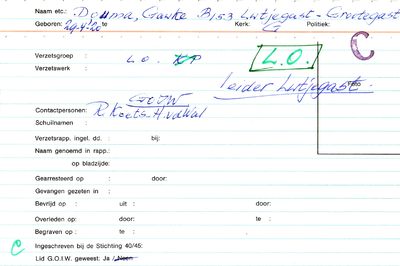 Naam etc.: Douma, Gauke B153 Lutjegast - Grootegast
Geboren: 29-4-20 te Kerk: G Politiek:
C
Verzetsgroep : L.O. KP L.O.
Verzetswerk :
leider Lutjegast.
GOIW
Contactpersonen: R. Koets. H. vd Wal
Schuilnaam :
Verzetsrapp. ingel. dd. : bij:
Naam genoemd in rapp.:
op bladzijde:
Gearresteerd op : door:
Gevangen gezeten in :
Bevrijd op : uit : door:
Overleden op: door: te :
Begraven op : te :
C Ingeschreven bij de Stichting 40/45:
Lid G.O.I.W. geweest: Ja / Neen